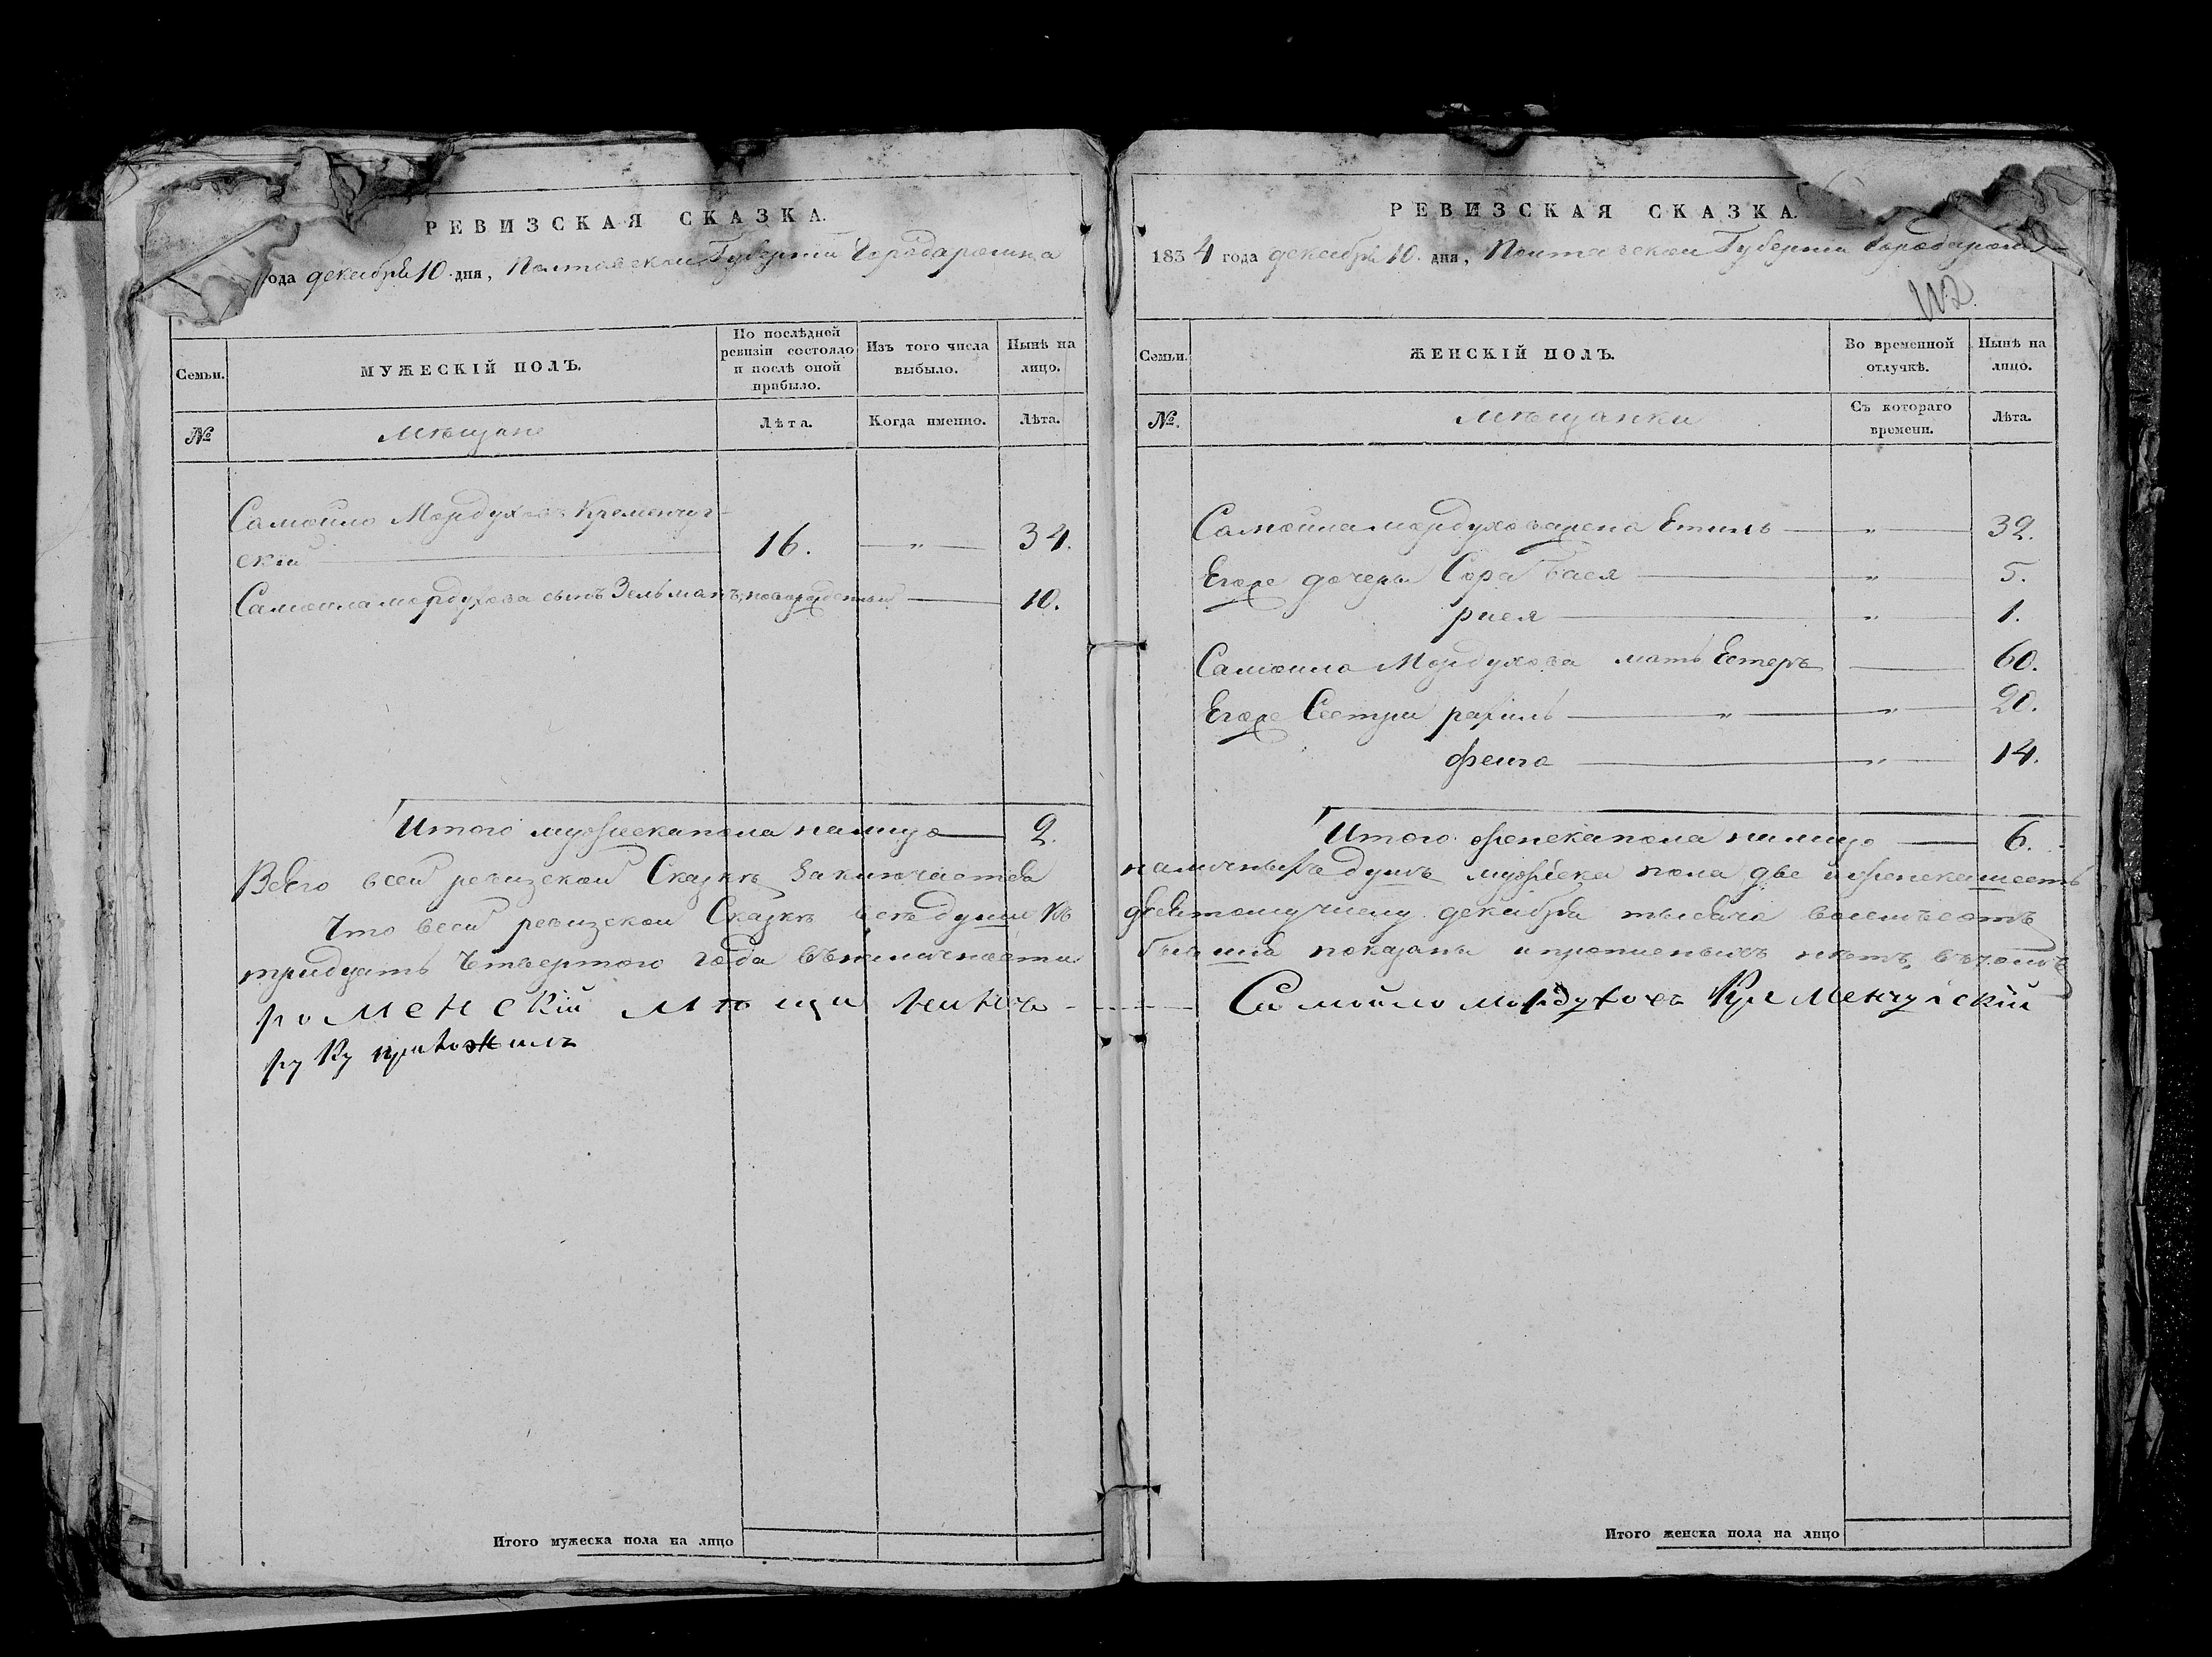 РЕВИЗСКАЯ СКАЗКА.
ода декабря 10. дня, Полтавской Губернии Города ромна
Семьи.
МУЖЕСКІЙ ПОЛЪ.
По послѣдней ревизіи состояло и послѣ оной прибыло.
Изъ того числа выбыло.
Нынѣ на лицо.
№
Мѣщане
Лѣта.
Когда именно.
Лѣта.
Самойло Мордуховъ Кременчуг-
скій 16. „ 34.
Самоила мордухова сынъ Зельманъ, новорожденный 10.
Итого мужеска пола налицо 2.
Всего всей ревизской Сказкѣ Заключается
Что всей ревизской Сказкѣ всѣ души Къ
тридцать Четвертого года въ наличности
роменскій мѣщанинъ
руку приложилъ
Итого мужеска пола на лицо
РЕВИЗСКАЯ СКАЗКА.
1834 года декабря 10. дня, Полтавской Губернии Города ромна
112.
Семьи.
ЖЕНСКІЙ ПОЛЪ.
Во временной отлучкѣ.
Нынѣ на лицо.
№.
мѣщанки
Съ котораго времени.
Лѣта.
Самойла мордухова жена Етиль „ 32.
Егоже дочеры Сора бася „ 5.
рися „ 1.
Самоила Мордухова мать Естеръ 60.
Егоже Сестры рахиль „ „ 20.
фейга „ 14.
Итого женска пола налицо 6.
наличныхъ душъ мужеска пола две и женска шесть
девятому числу декабря тысяча восемъсотъ
бывшия показаны и прописныхъ нѣтъ, въ чомъ
Самойло мордуховъ Кременчугскій
Итого женска пола на лицо